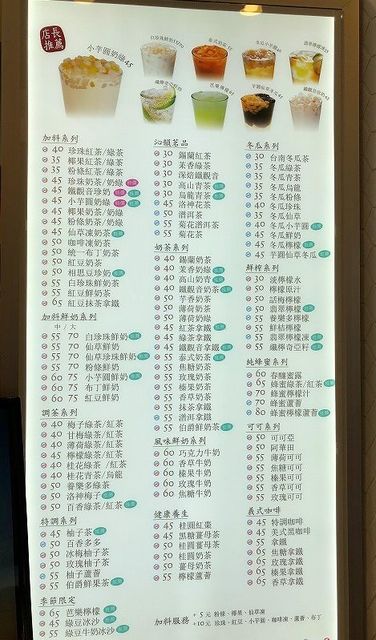 店長推薦
小芋圓奶綠45
加料系列
40 珍珠紅茶/綠茶
35 椰果紅茶/綠茶
35 粉條紅茶/綠茶
45 珍珠奶茶/奶綠
45 鐵觀音珍奶
45 小芋圓奶綠
45 椰果奶茶/奶綠
45 粉條奶茶/奶綠
45 仙草凍奶茶
50 咖啡凍奶茶
50 統一布丁奶茶
50 紅豆奶茶
50 相思豆珍奶
55 白珍珠鮮奶茶
55 紅豆鮮奶茶
65 紅豆抹茶拿鐵
加料鮮奶系列
中/大
55 70 白珍珠鮮奶
55 70 仙草鮮奶
55 70 仙草珍珠鮮奶
55 70 粉條鮮奶
60 75 小芋圓鮮奶
60 75 布丁鮮奶
60 75 紅豆鮮奶
調茶系列
40 梅子綠茶/紅茶
40 甘梅綠茶/紅茶
40 薄荷綠茶/紅茶
45 檸檬綠茶/紅茶
40 桂花綠茶/紅茶
40 桂花青茶/烏龍
50 養樂多綠茶
50 洛神梅子
50 百香綠茶/紅茶
特調系列
45 柚子茶
50 百香多多
50 冰梅柚子茶
50 玫瑰柚子茶
55 柚子蘆薈
55 伯爵鮮果茶
季節限定
65 芭樂檸檬
45 綠豆冰沙
55 綠豆牛奶冰沙
沁韻茗品
30 錫蘭紅茶
30 茉香綠茶
30 深焙鐵觀音
30 高山青茶
30 烏龍青茶
45 洛神花茶
50 潽洱茶
55 菊花潽洱茶
55 菊花茶
奶茶系列
40 錫蘭奶茶
40 茉香奶綠
40 高山奶青
40 鐵觀音奶茶
50 芋香奶茶
50 薄荷奶茶
50 薄荷奶綠
45 紅茶拿鐵
45 綠茶拿鐵
45 鐵觀音拿鐵
55 泰式奶茶
55 焦糖奶茶
55 玫瑰奶茶
55 榛果奶茶
55 香草奶茶
55 抹茶拿鐵
55 潽洱拿鐵
55 伯爵鮮奶茶
風味鮮奶系列
60 巧克力牛奶
60 香草牛奶
60 榛果牛奶
60 玫瑰牛奶
60 焦糖牛奶
健康養生
45 桂圓紅棗
45 黑糖薑母茶
50 桂圓薑母茶
50 桂圓奶茶
50 薑母奶茶
55 檸檬蘆薈
冬瓜系列
30 台南冬瓜茶
35 冬瓜綠茶
35 冬瓜青茶
35 冬瓜烏龍
35 冬瓜粉條
40 冬瓜珍珠
35 冬瓜仙草
40 冬瓜小芋圓
45 冬瓜鮮奶
45 冬瓜檸檬
45 芋圓仙草冬瓜
鮮榨系列
30 淡檸檬水
50 檸檬原汁
50 話梅檸檬
50 翡翠檸檬
55 養樂多檸檬
55 鮮桔檸檬
55 翡翠檸檬凍
55 纖檸奇亞籽
純蜂蜜系列
60 春釀蜜露
65 蜂蜜綠茶/紅茶
70 蜂蜜檸檬汁
70 蜂蜜蘆薈
80 蜂蜜檸檬蘆薈
可可系列
50 可可亞
50 阿華田
55 薄荷可可
55 焦糖可可
55 榛果可可
55 香草可可
55 玫瑰可可
義式咖啡
45 特調咖啡
45 美式黑咖啡
55 拿鐵
65 焦糖拿鐵
65 玫瑰拿鐵
65 榛果拿鐵
65 香草拿鐵
加料服務
+5元 粉條、椰果、仙草凍
+10元 珍珠、紅豆、小芋圓、咖啡凍、蘆薈、布丁